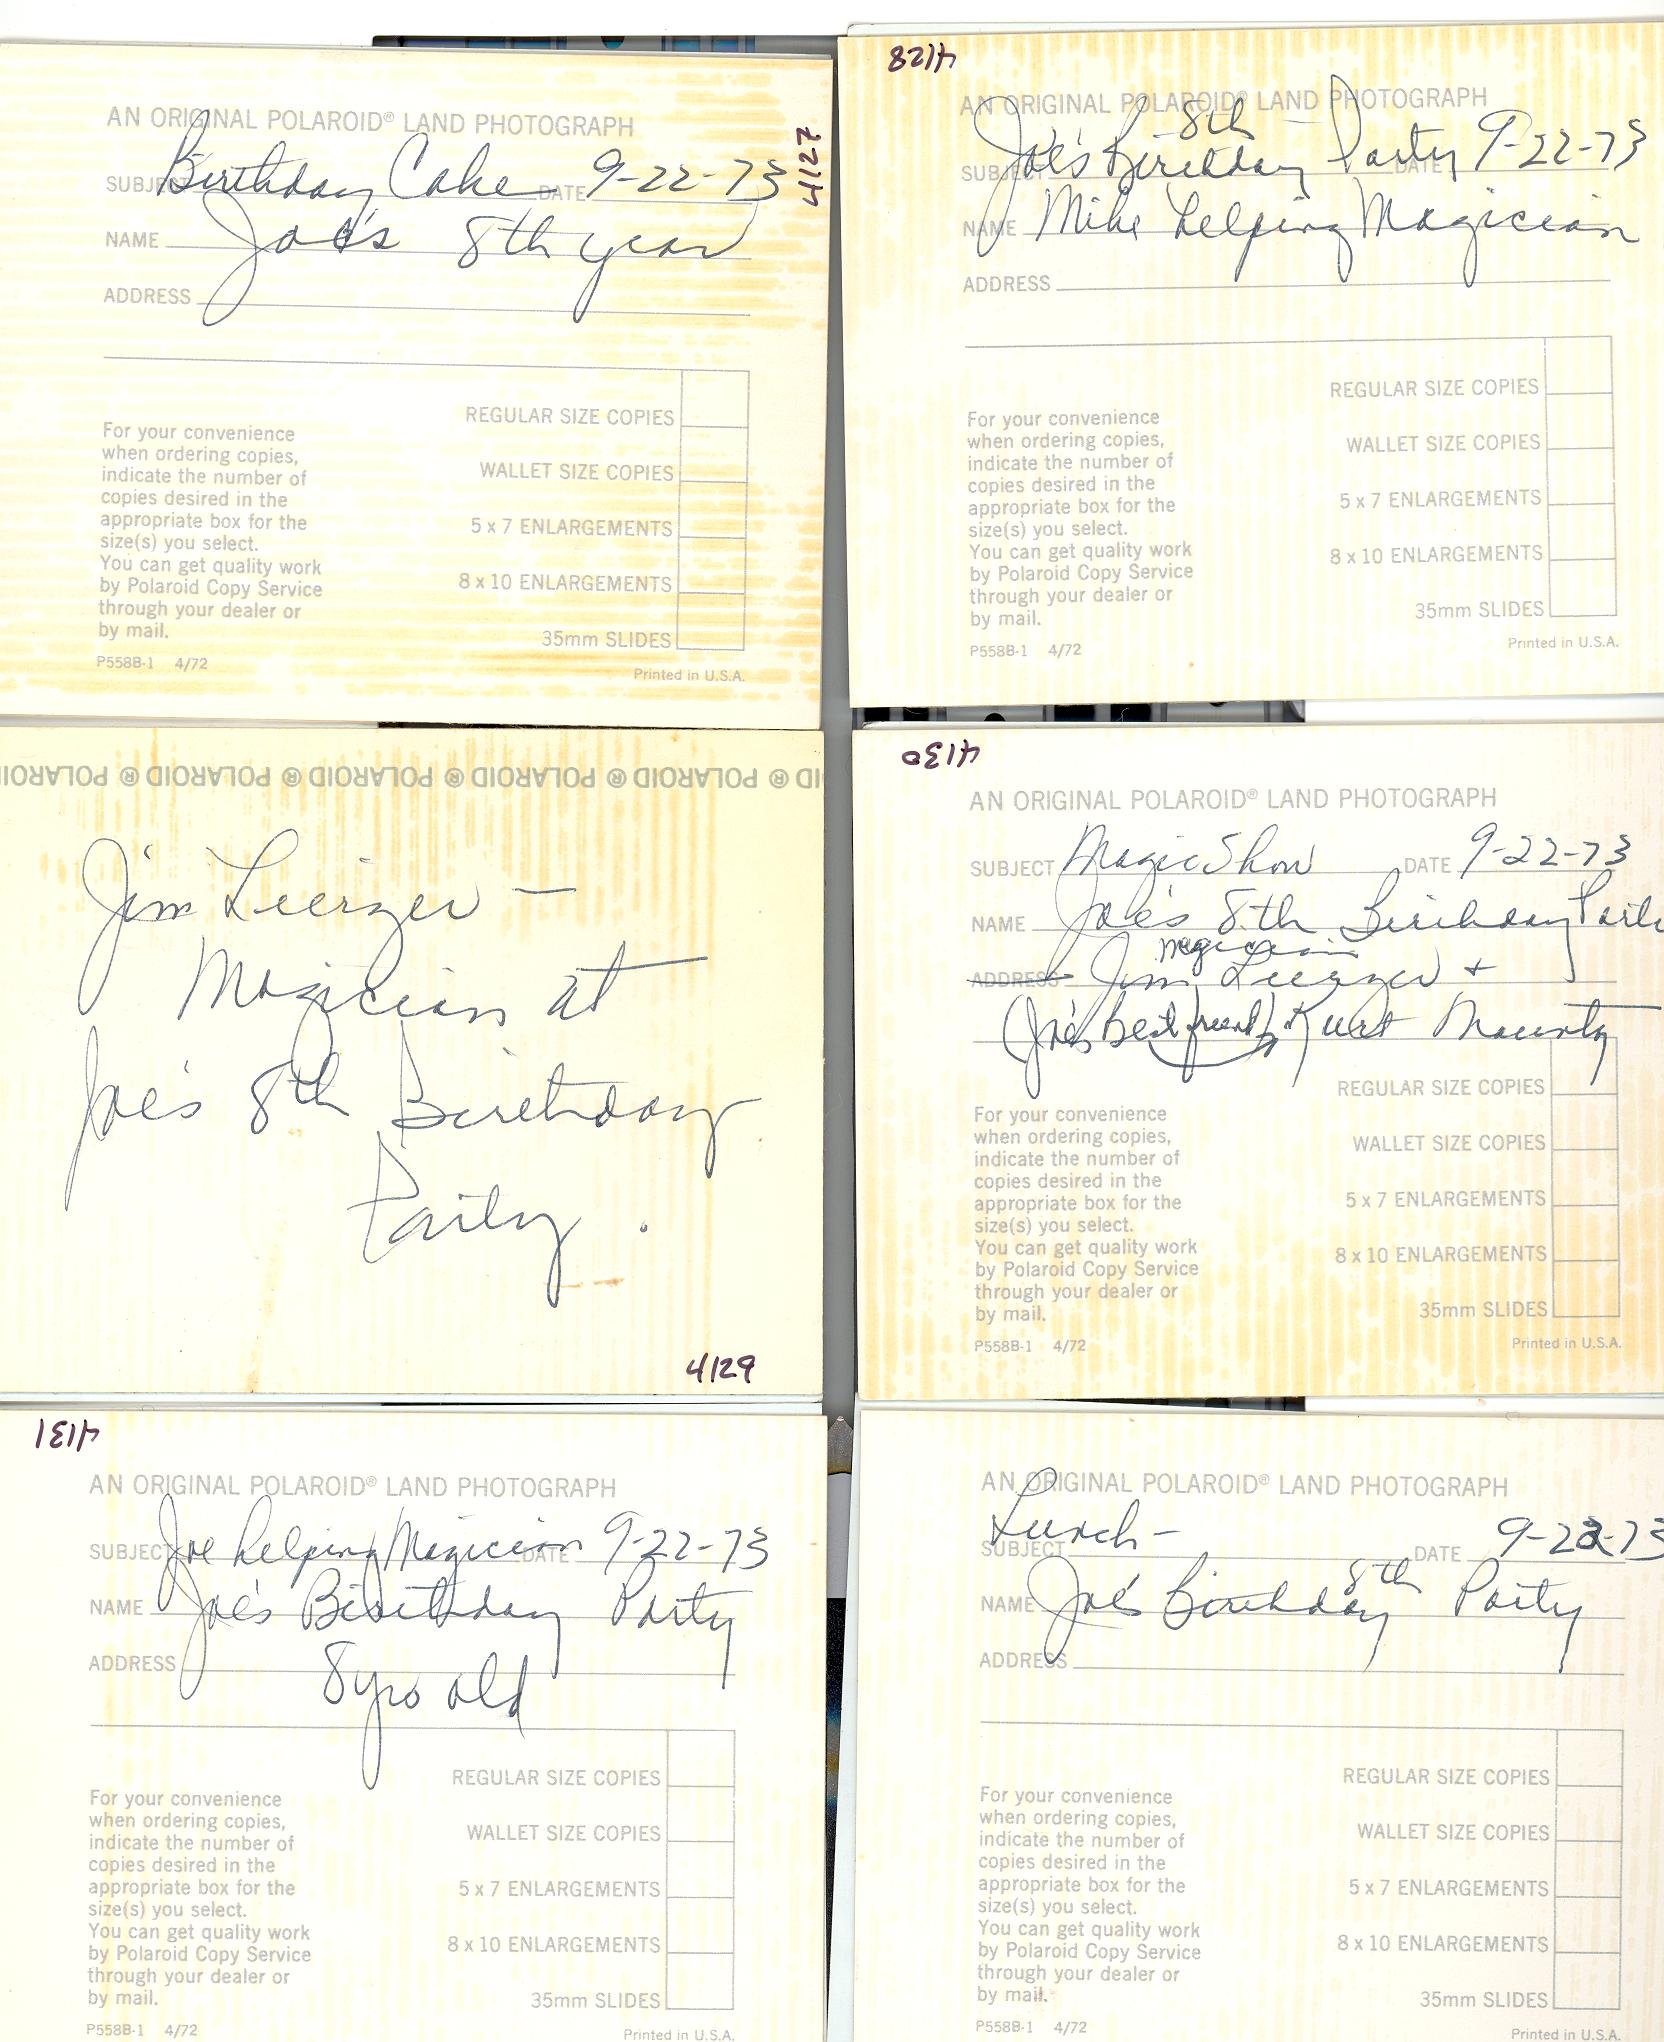 4127
AN ORIGINAL POLAROID® LAND PHOTOGRAPH
SUBJECT Birthday Cake DATE 9-22-73
NAME Joe's 8th year
ADDRESS
REGULAR SIZE COPIES
WALLET SIZE COPIES
5 x 7 ENLARGEMENTS
8 x 10 ENLARGEMENTS
35mm SLIDES
For your convenience
when ordering copies,
indicate the number of
copies desired in the
appropriate box for the
size(s) you select.
You can get quality work
by Polaroid Copy Service
through your dealer or
by mail.
P558B-1 4/72
Printed in U.S.A.
4128
AN ORIGINAL POLAROID® LAND PHOTOGRAPH
8th
SUBJECT Joe's Birthday Party DATE 9-22-73
NAME Mike helping Magician
ADDRESS
REGULAR SIZE COPIES
WALLET SIZE COPIES
5 x 7 ENLARGEMENTS
8 x 10 ENLARGEMENTS
35mm SLIDES
For your convenience
when ordering copies,
indicate the number of
copies desired in the
appropriate box for the
size(s) you select.
You can get quality work
by Polaroid Copy Service
through your dealer or
by mail.
P558B-1 4/72
Printed in U.S.A.
POLAROID ® POLAROID ® POLAROID ® POLAROID ® POLAROID ®
Jim –
Magician at
Joe's 8th Birthday
Party.
4129
4130
AN ORIGINAL POLAROID® LAND PHOTOGRAPH
SUBJECT Magic Show DATE 9-22-73
NAME Joe's 8th Birthday Party
magician
ADDRESS Jim +
(Joe's Best friend) Kurt
REGULAR SIZE COPIES
WALLET SIZE COPIES
5 x 7 ENLARGEMENTS
8 x 10 ENLARGEMENTS
35mm SLIDES
For your convenience
when ordering copies,
indicate the number of
copies desired in the
appropriate box for the
size(s) you select.
You can get quality work
by Polaroid Copy Service
through your dealer or
by mail.
P558B-1 4/72
Printed in U.S.A.
4131
AN ORIGINAL POLAROID® LAND PHOTOGRAPH
SUBJECT Joe helping Magician DATE 9-22-73
NAME Joe's Birthday Party
ADDRESS 8 yrs old
REGULAR SIZE COPIES
WALLET SIZE COPIES
5 x 7 ENLARGEMENTS
8 x 10 ENLARGEMENTS
35mm SLIDES
For your convenience
when ordering copies,
indicate the number of
copies desired in the
appropriate box for the
size(s) you select.
You can get quality work
by Polaroid Copy Service
through your dealer or
by mail.
P558B-1 4/72
Printed in U.S.A.
AN ORIGINAL POLAROID® LAND PHOTOGRAPH
SUBJECT Lunch – DATE 9-22-73
8th
NAME Joe's Birthday Party
ADDRESS
REGULAR SIZE COPIES
WALLET SIZE COPIES
5 x 7 ENLARGEMENTS
8 x 10 ENLARGEMENTS
35mm SLIDES
For your convenience
when ordering copies,
indicate the number of
copies desired in the
appropriate box for the
size(s) you select.
You can get quality work
by Polaroid Copy Service
through your dealer or
by mail.
P558B-1 4/72
Printed in U.S.A.